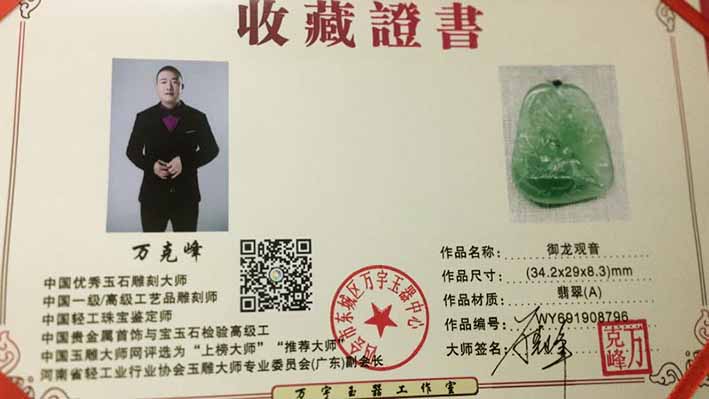 收藏證書
万克峰
中国优秀玉石雕刻大师
中国一级/高级工艺品雕刻师
中国轻工珠宝鉴定师
中国贵金属首饰与宝玉石检验高级工
中国玉雕大师网评选为“上榜大师”“推荐大师”
河南省轻工业行业协会玉雕大师专业委员会(广东)副会长
市东城区万宇玉器中心
作品名称: 御龙观音
作品尺寸: (34.2x29x8.3)mm
作品材质: 翡翠(A)
作品编号: WY691908796
大师签名: 万克峰
万克峰
万宇玉器工作室